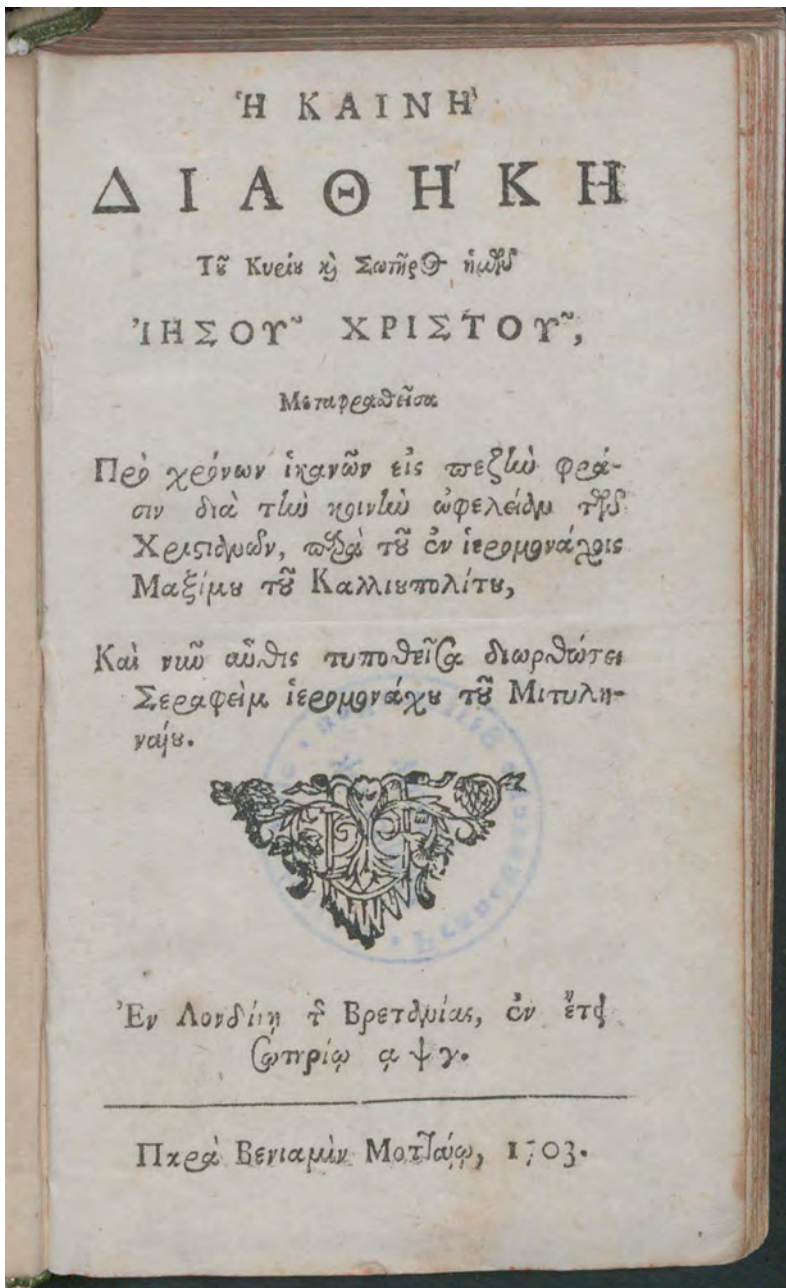 Ἡ ΚΑΙΝΗ`
ΔΙΑΘΗ´ΚΗ
Τȣ͂ Κυρίȣ ϗ Σωτῆρος ἡμῶν
ἸΗΣΟΥ͂ ΧΡΙΣΤΟΥ͂,
Μεταφραθεῖσα
Πρὸ χρόνων ἱκανῶν εἰς πεζὴν φρά-
σιν διὰ τὴν κοινὴν ὠφέλειαν τῶν
Χριϛιανῶν, παρὰ τȣ͂ ἐν ἱερομονάχοις
Μαξίμȣ τȣ͂ Καλλιȣπολίτȣ,
Καὶ νῦν αὖθις τυποθεῖσα διορθώσει
Σεραφεὶμ ἱερομονάχȣ τȣ͂ Μιτυλη-
ναίȣ.
Ἐν Λονδίνῃ τῆς Βρετανίας, ἐν ἔτει
σωτηρίῳ αψγ.
Παρὰ Βενιαμὶν Μοτ͂, 1703.